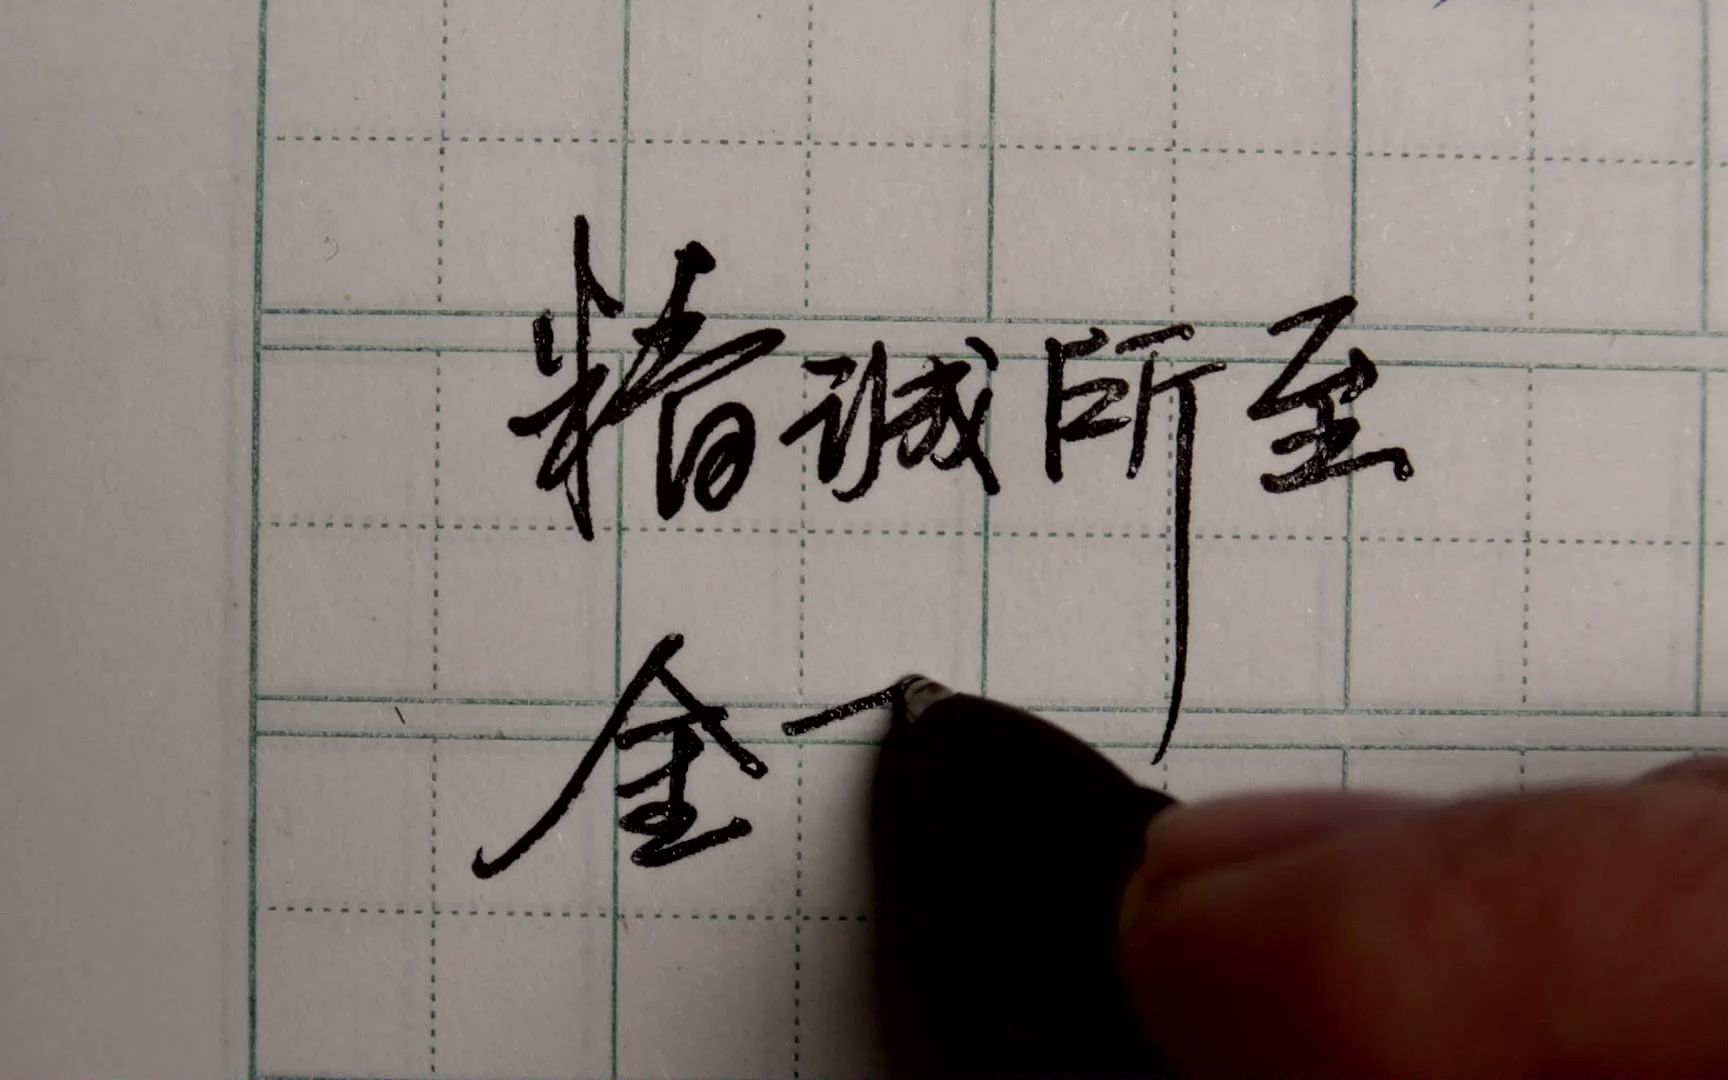 精诚所至
金